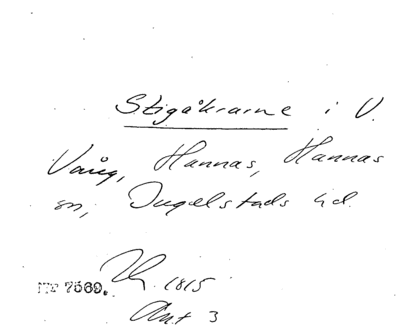 Stigåkrarne i V.
Vång, Hannas, Hannas
sn, Ingelstads hd.
1815
7569.
Akt 3